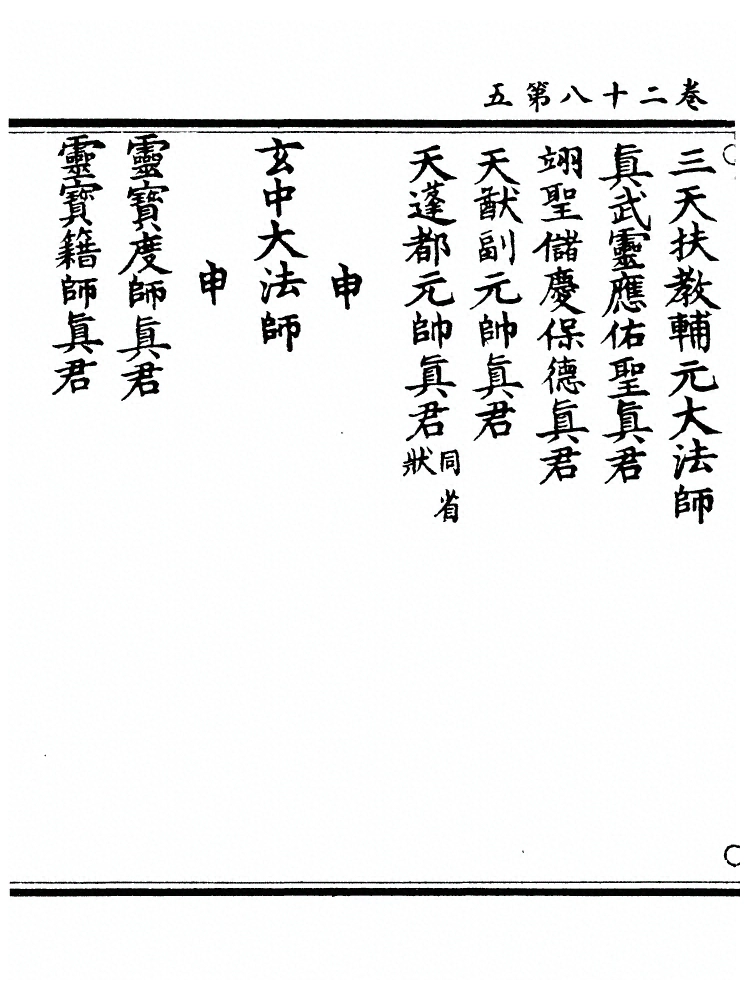 卷二十八第五
三天扶教輔元大法師
眞武靈應佑聖眞君
翊聖儲慶保德眞君
天猷副元帥眞君
天蓬都元帥眞君同省狀
申
玄中大法師
申
靈寶度師眞君
靈寶籍師眞君